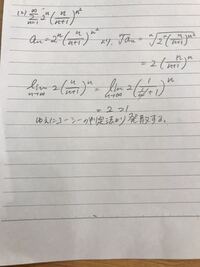 (2) ∞Σn=1 3^n (n/n+1)^n²
an = 2^n (n/n+1)^n² より ⁿ√an = ⁿ√2^n (n/n+1)^n²
= 2 (n/n+1)^n
lim n→∞ 2 (n/n+1)^n = lim n→∞ 2 (1/(1/n+1))^n
= 2 > 1
ゆえにコーシーの判定法より発散する。